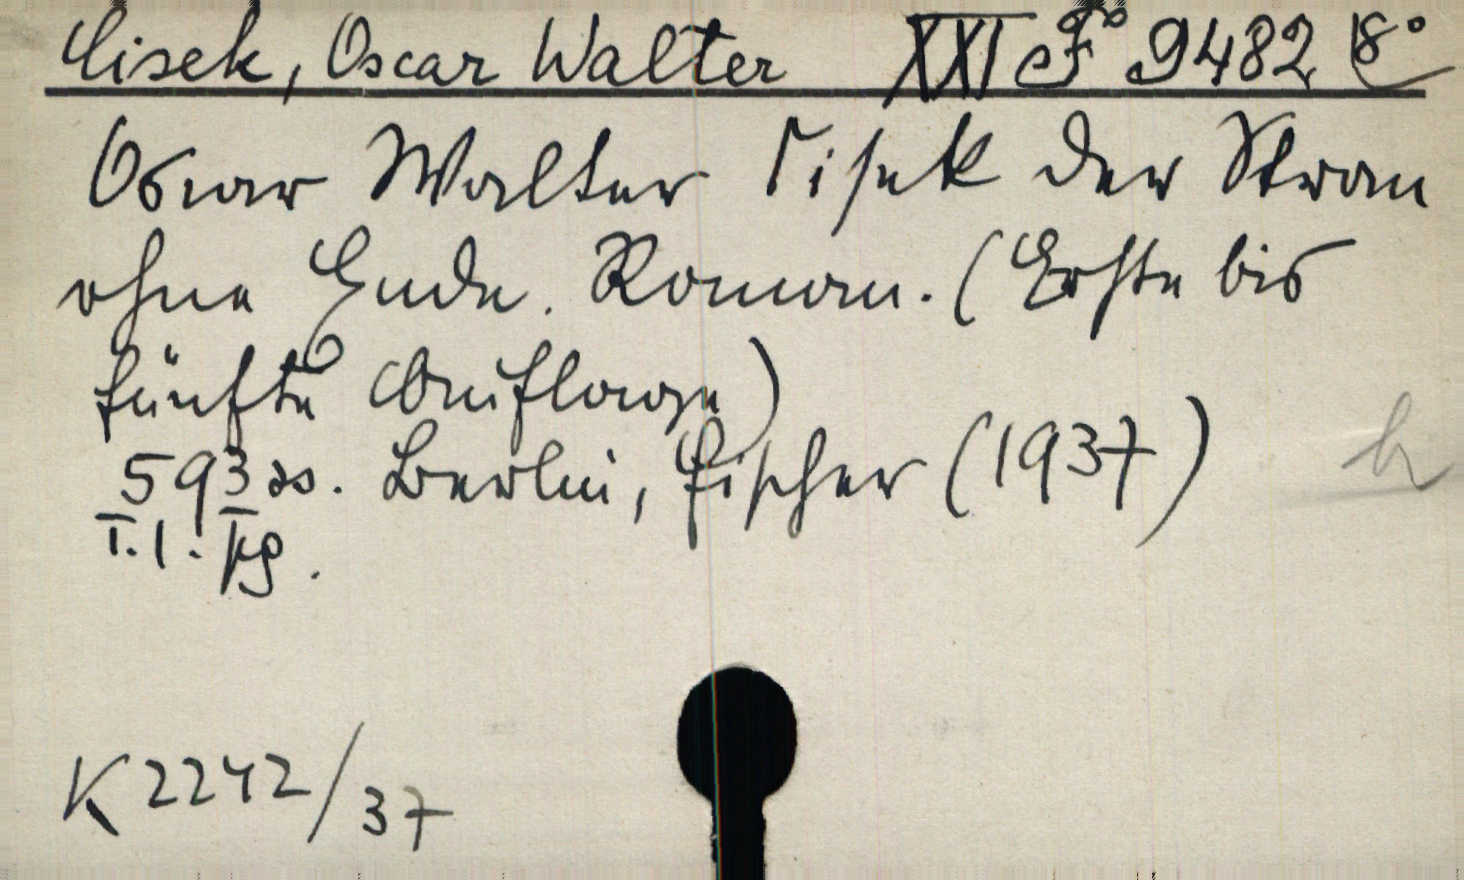 Cisek, Oscar Walter XXI F 9482 8°
Oscar Walter Cisek Der Strom
ohne Ende. Roman. (Erste bis
fünfte Auflage)
593 S. Berlin, Fischer (1937)
I.1. kg.
K 2242/37